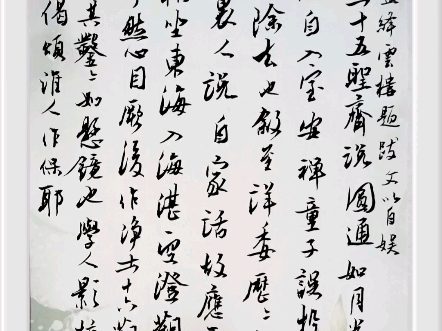 絳雲樓題跋文以自娱
二十五聖齊說圓通如月光
自入室安禪童子誤投
除去也敘至詳委歷歷
裏人說自家話故應
坐東海入海湛空澄觀
了然心目厥後作淨土十六觀
其鑿鑿如懸鏡也學人影
偈頌誰人作保耶